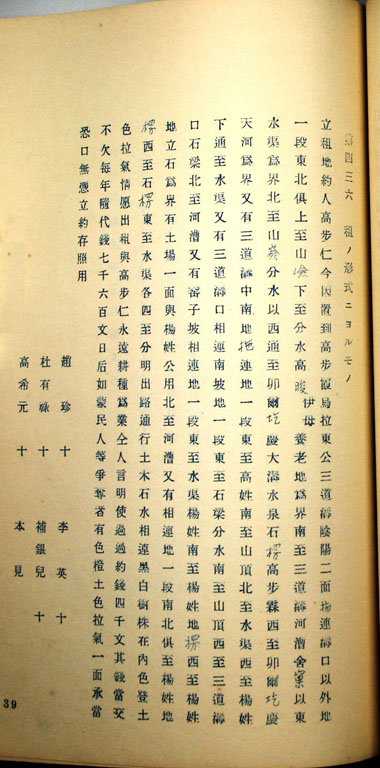 第四三六 租ノ形式ニヨルモノ
立租地約人高步仁今因置到高步霞烏拉東公三道溝陰陽二面拖連溝口以外地
一段東北俱上至山嶮下至分水高畯伊母養老地爲界南至三道溝河漕舍窰以東
水渠爲界北至山䓤分水以西通至卯爾圪慶大溝水泉石楞高步霖西至卯爾圪慶
天河爲界又有三道溝中南地拖連地一段東至高姓南至山頂北至水渠西至楊姓
下通至水渠又有三道溝口相連南坡地一段東至石梁分水南至山頂西至三道溝
口石梁北至河漕又有窰子坡相連地一段東至水渠楊姓南至楊姓地楞西至楊姓
地立石爲界有土場一面與楊姓公用北至河漕又有相連地一段南北俱至楊姓地
楞西至石楞東至水渠各四至分明出路通行土木石水相連黑白樹株在內色登土
色拉氣情愿出租與高步仁永遠耕種爲業仝人言明使過過約錢四千文其錢當交
不欠每年隨代錢七千六百文日后如蒙民人等爭奪者有色橙土色拉氣一面承當
恐口無憑立約存照用
趙珍 十 李英 十
杜有祿 十 補銀兒 十
高希元 十 本見
39